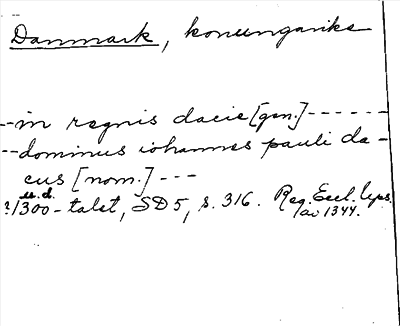 Danmark, konungarike
--in regnis dacie [gen.]------
--dominus iohannes pauli da-
cus [nom.]---
u.d.
?/1300-talet, SD5, s. 316. Reg. Eccl. Ups.
av 1344.